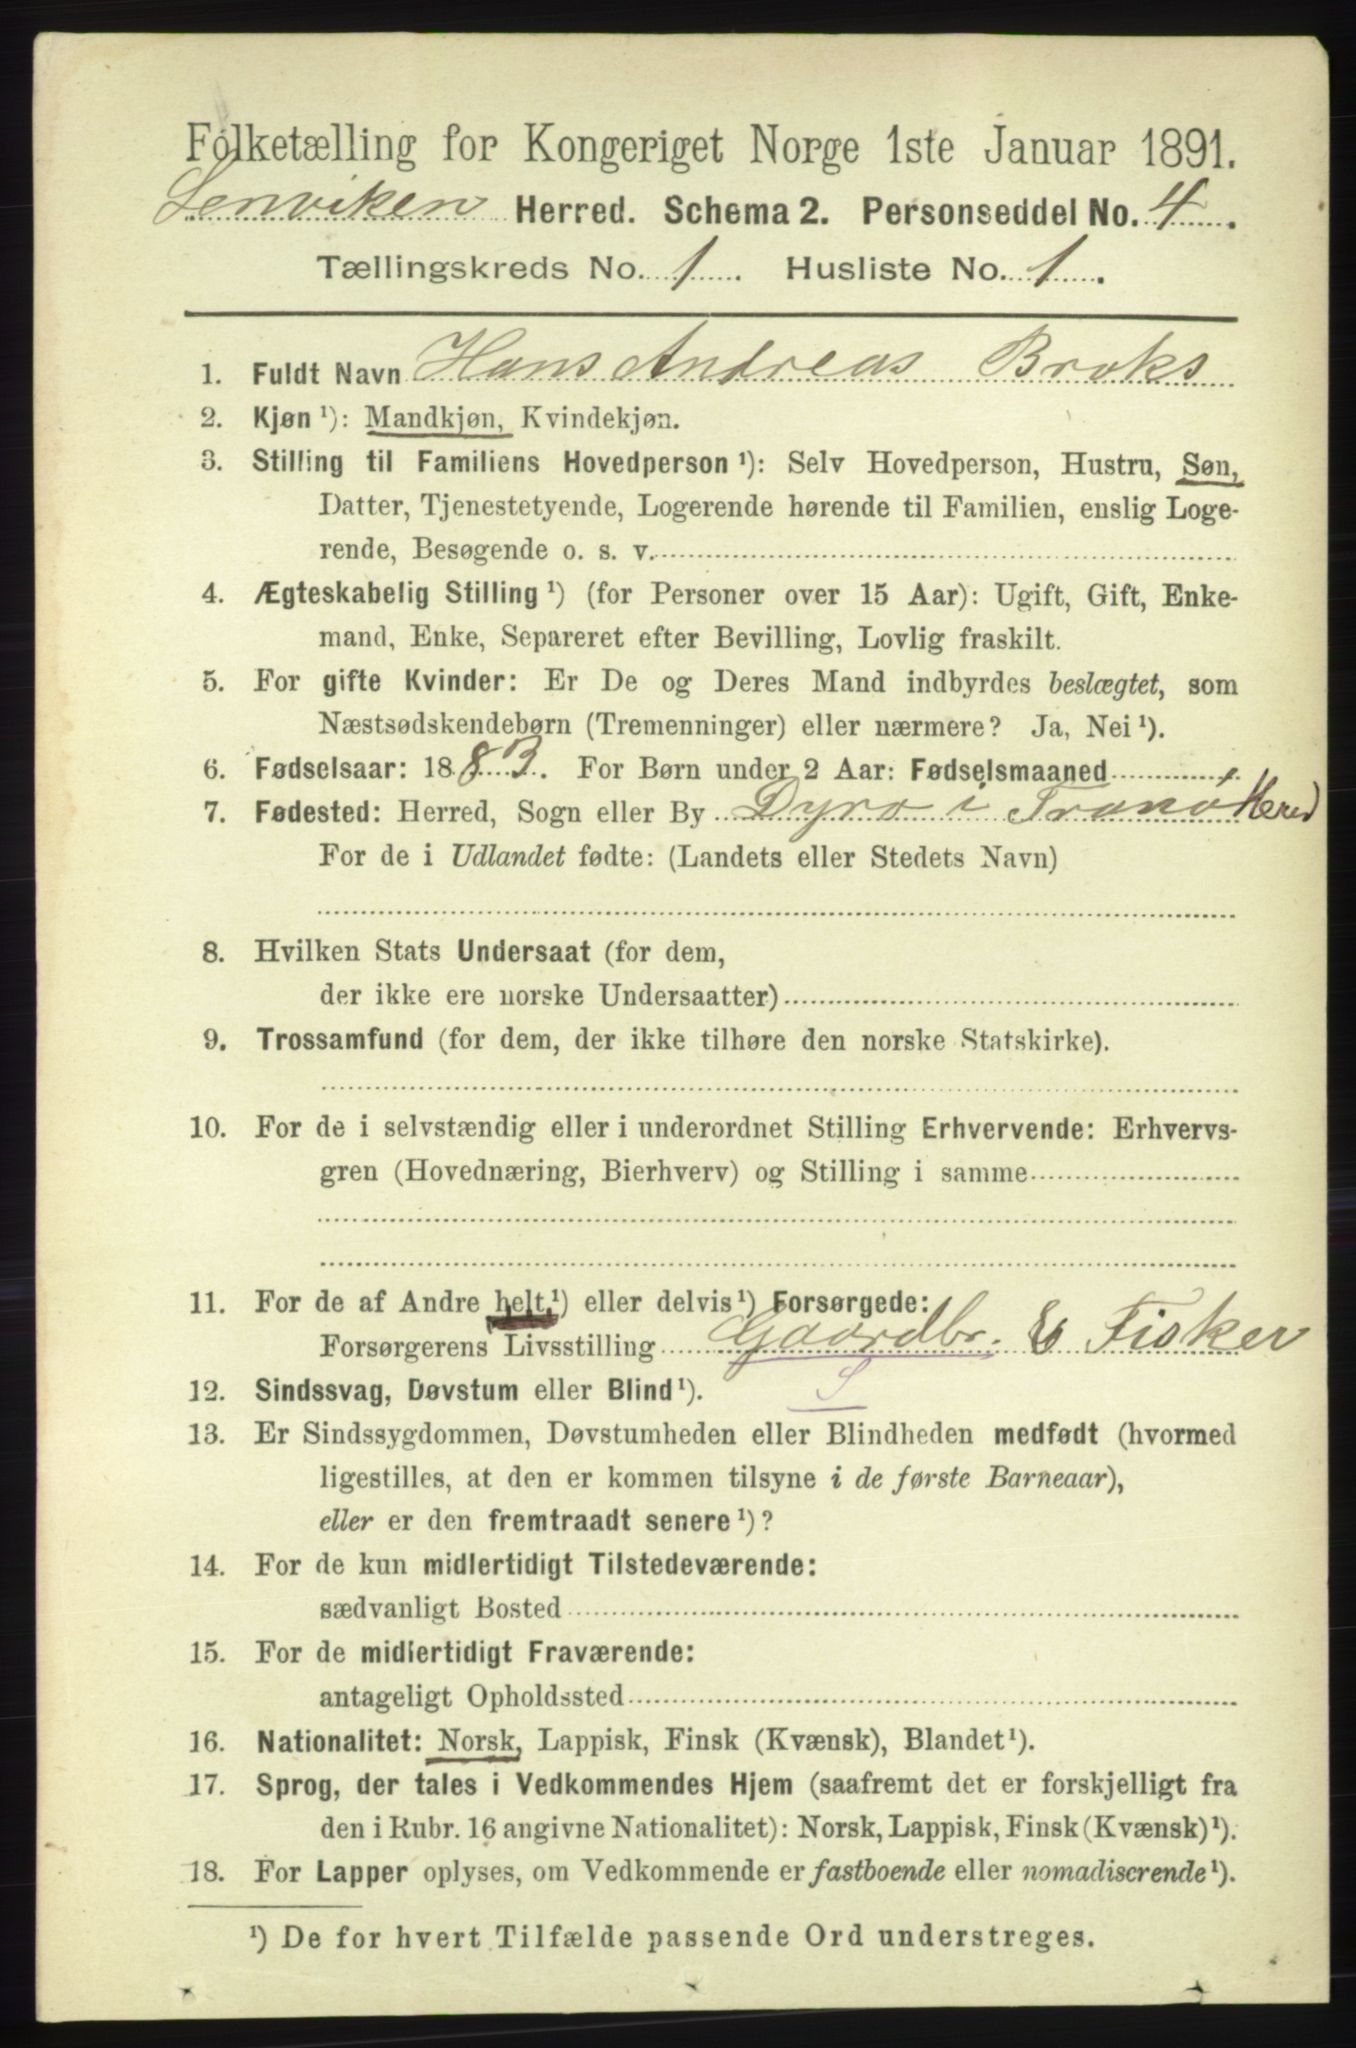 Folketælling for Kongeriget Norge 1ste Januar 1891.
Lenviken Herred. Schema 2. Personseddel No. 4.
Tællingskreds No. 1. Husliste No. 1.
1. Fuldt Navn Hans Andreas Broks
2. Kjøn ¹): Mandkjøn, Kvindekjøn.
3. Stilling til Familiens Hovedperson ¹): Selv Hovedperson, Hustru, Søn,
Datter, Tjenestetyende, Logerende hørende til Familien, enslig Loge-
rende, Besøgende o. s. v.
4. Ægteskabelig Stilling ¹) (for Personer over 15 Aar): Ugift, Gift, Enke-
mand, Enke, Separeret efter Bevilling, Lovlig fraskilt.
5. For gifte Kvinder: Er De og Deres Mand indbyrdes beslægtet, som
Næstsødskendebørn (Tremenninger) eller nærmere? Ja, Nei ¹).
6. Fødselsaar: 1883. For Børn under 2 Aar: Fødselsmaaned
7. Fødested: Herred, Sogn eller By Dyrø i Tranø Herred
For de i Udlandet fødte: (Landets eller Stedets Navn)
8. Hvilken Stats Undersaat (for dem,
der ikke ere norske Undersaatter)
9. Trossamfund (for dem, der ikke tilhøre den norske Statskirke).
10. For de i selvstændig eller i underordnet Stilling Erhvervende: Erhvervs-
gren (Hovednæring, Bierhverv) og Stilling i samme
11. For de af Andre helt ¹) eller delvis ¹) Forsørgede:
Forsørgerens Livsstilling Gaardbr. & Fisker
12. Sindssvag, Døvstum eller Blind ¹). S
13. Er Sindssygdommen, Døvstumheden eller Blindheden medfødt (hvormed
ligestilles, at den er kommen tilsyne i de første Barneaar),
eller er den fremtraadt senere ¹)?
14. For de kun midlertidigt Tilstedeværende:
sædvanligt Bosted
15. For de midlertidigt Fraværende:
antageligt Opholdssted
16. Nationalitet: Norsk, Lappisk, Finsk (Kvænsk), Blandet ¹).
17. Sprog, der tales i Vedkommendes Hjem (saafremt det er forskjelligt fra
den i Rubr. 16 angivne Nationalitet): Norsk, Lappisk, Finsk (Kvænsk) ¹).
18. For Lapper oplyses, om Vedkommende er fastboende eller nomadiserende ¹).
¹) De for hvert Tilfælde passende Ord understreges.